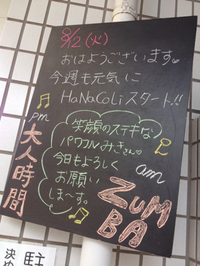 8/2(火)
おはようございます。
今週も元気に
HaNaCoLiスタート!!
pm
大人時間
笑顔のステキな
パワフルみきさん
今日もよろしく
お願い
しま〜す。
am
ZUM
BA
駐
決め